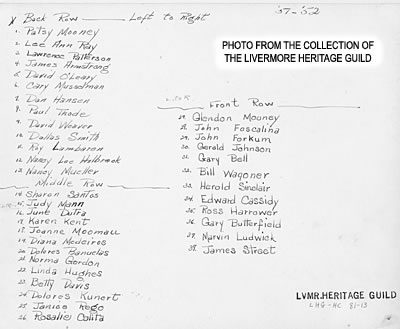 X Back Row Left to Right
'51-'52
1. Patsy Mooney
2. Lee Ann Ray
3. Lawrence Patterson
4. James Armstrong
5. David O'Leary
6. Gary Musselman
7. Dan Hansen
8. Paul Thode
9. David Weaver
10. Dallas Smith
11. Roy Lambaren
12. Nancy Lee Holbrook
13. Nancy Mueller
Middle Row
14. Sharon Santos
15. Judy Mann
16. June Dutra
17. Karen Kent
18. Joanne
19. Diana Medeiros
20. Dolores Banuelos
21. Norma Gordon
22. Linda Hughes
23. Betty Davis
24. Dolores Kunert
25. Janice Rego
26. Rosalie Calita
PHOTO FROM THE COLLECTION OF
THE LIVERMORE HERITAGE GUILD
Front Row
27. Glendon Mooney
28. John Foscalina
29. John Forkum
30. Gerald Johnson
31. Gary Bell
32. Bill Wagoner
33. Herold Sinclair
34. Edward Cassidy
35. Ross Harrower
36. Gary Butterfield
37. Marvin Ludwick
38. James Street
LVMR. HERITAGE GUILD
LHG-HC 81-13